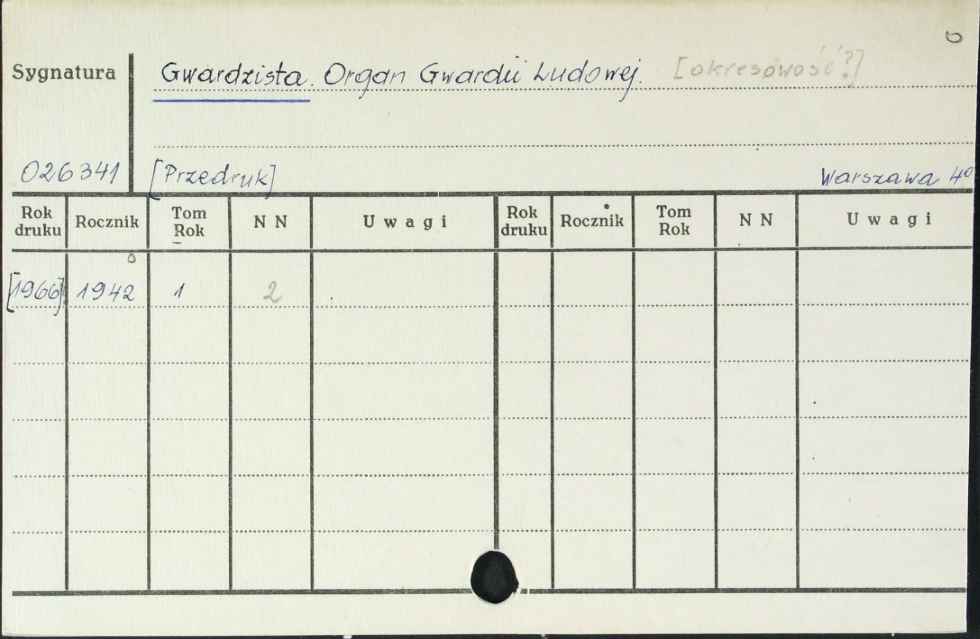 Sygnatura
Gwardzista. Organ Gwardii Ludowej. [okresowość?]
026341
[Przedruk]
Warszawa 4°
Rok druku Rocznik Tom Rok N N Uwagi Rok druku Rocznik Tom Rok N N Uwagi
[1966] 1942 1 2